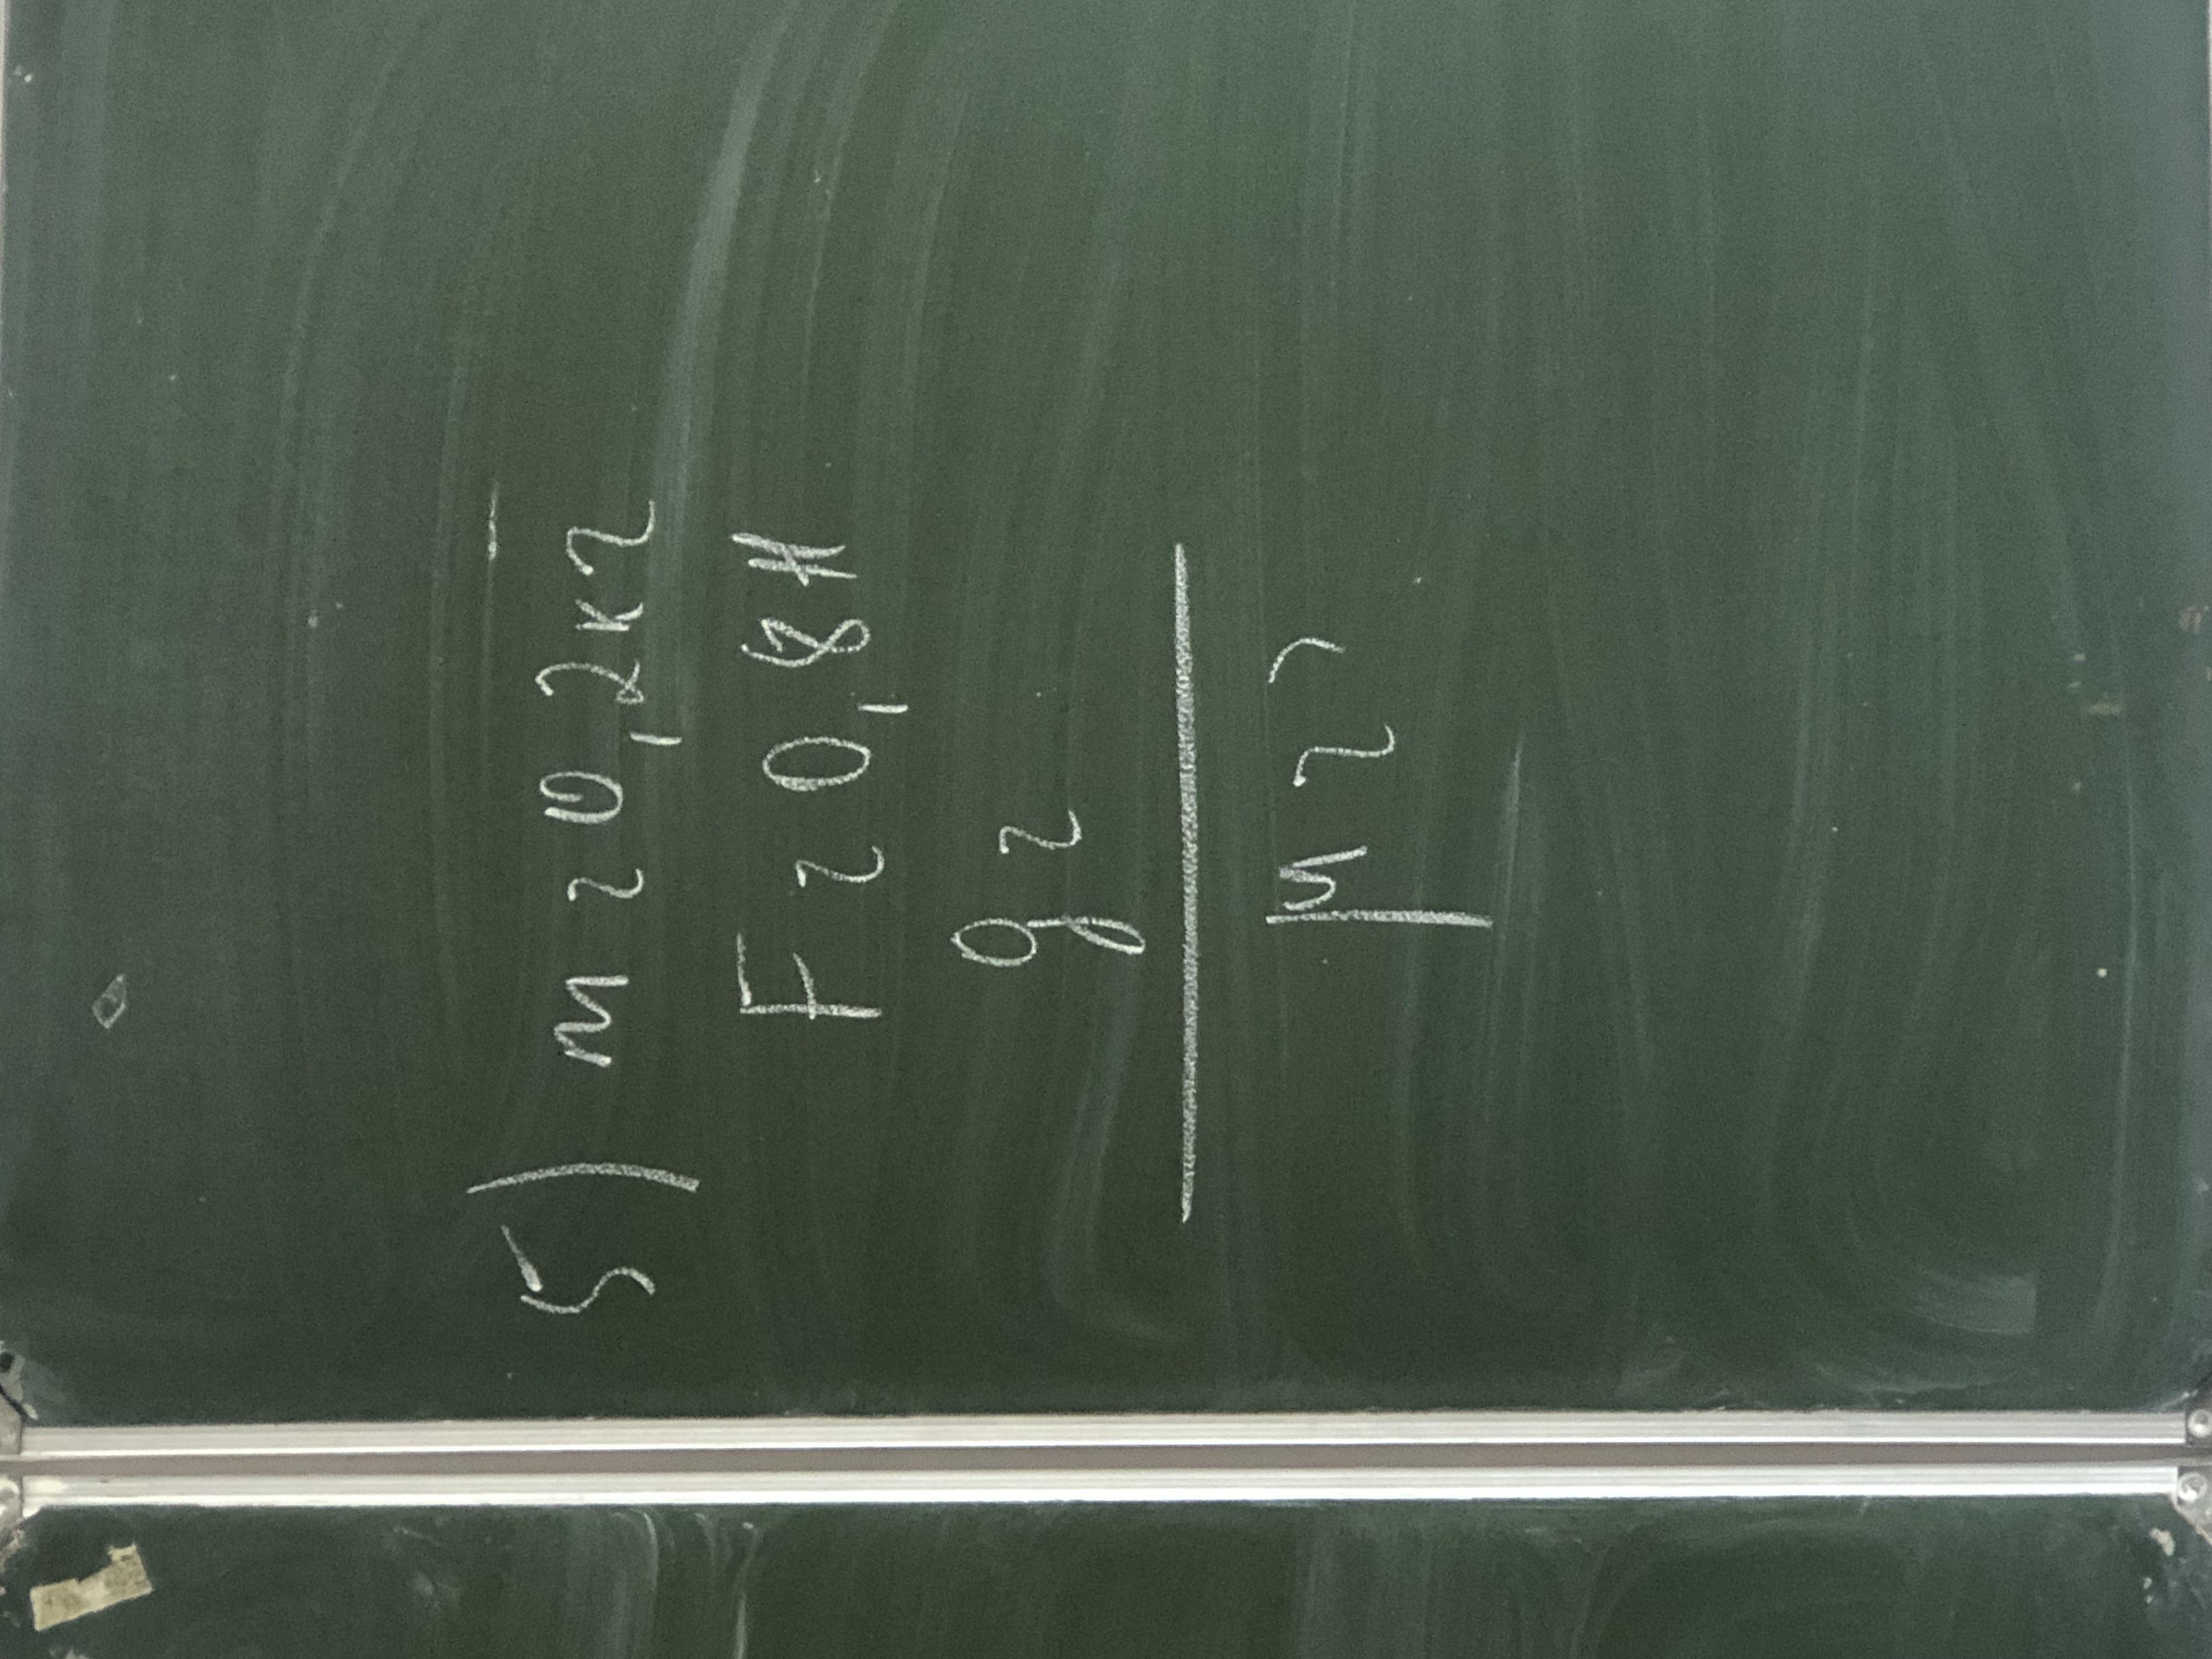 5) m = 0,2кг
F = 0,8Н
g =
μ = ?